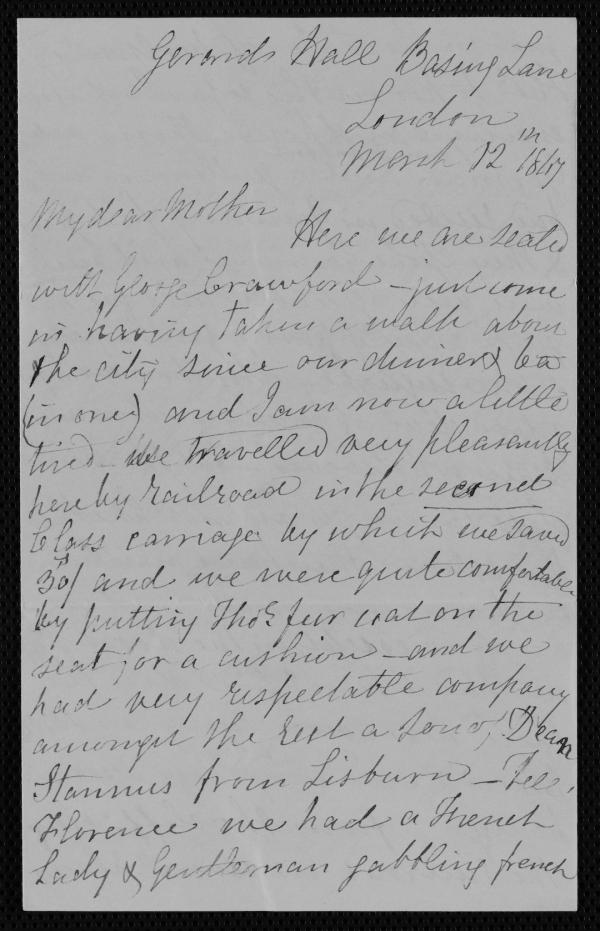 Gerards Hall Basing Lane
London
March 12th 1847
My dear Mother
Here we are seated
with George Crawford - just come
in having taken a walk about
the city since our dinner & tea
(in one) and I am now a little
tired - We travelled very pleasantly
here by railroad in the second
Class carriage by which we saved
30/ and we were quite comfortable
by putting Thos fur coat on the
seat for a cushion - and we
had very respectable company
amongst the rest a son of Dean
Stannus from Lisburn - Tell
Florence we had a French
Lady & Gentleman gabbling french